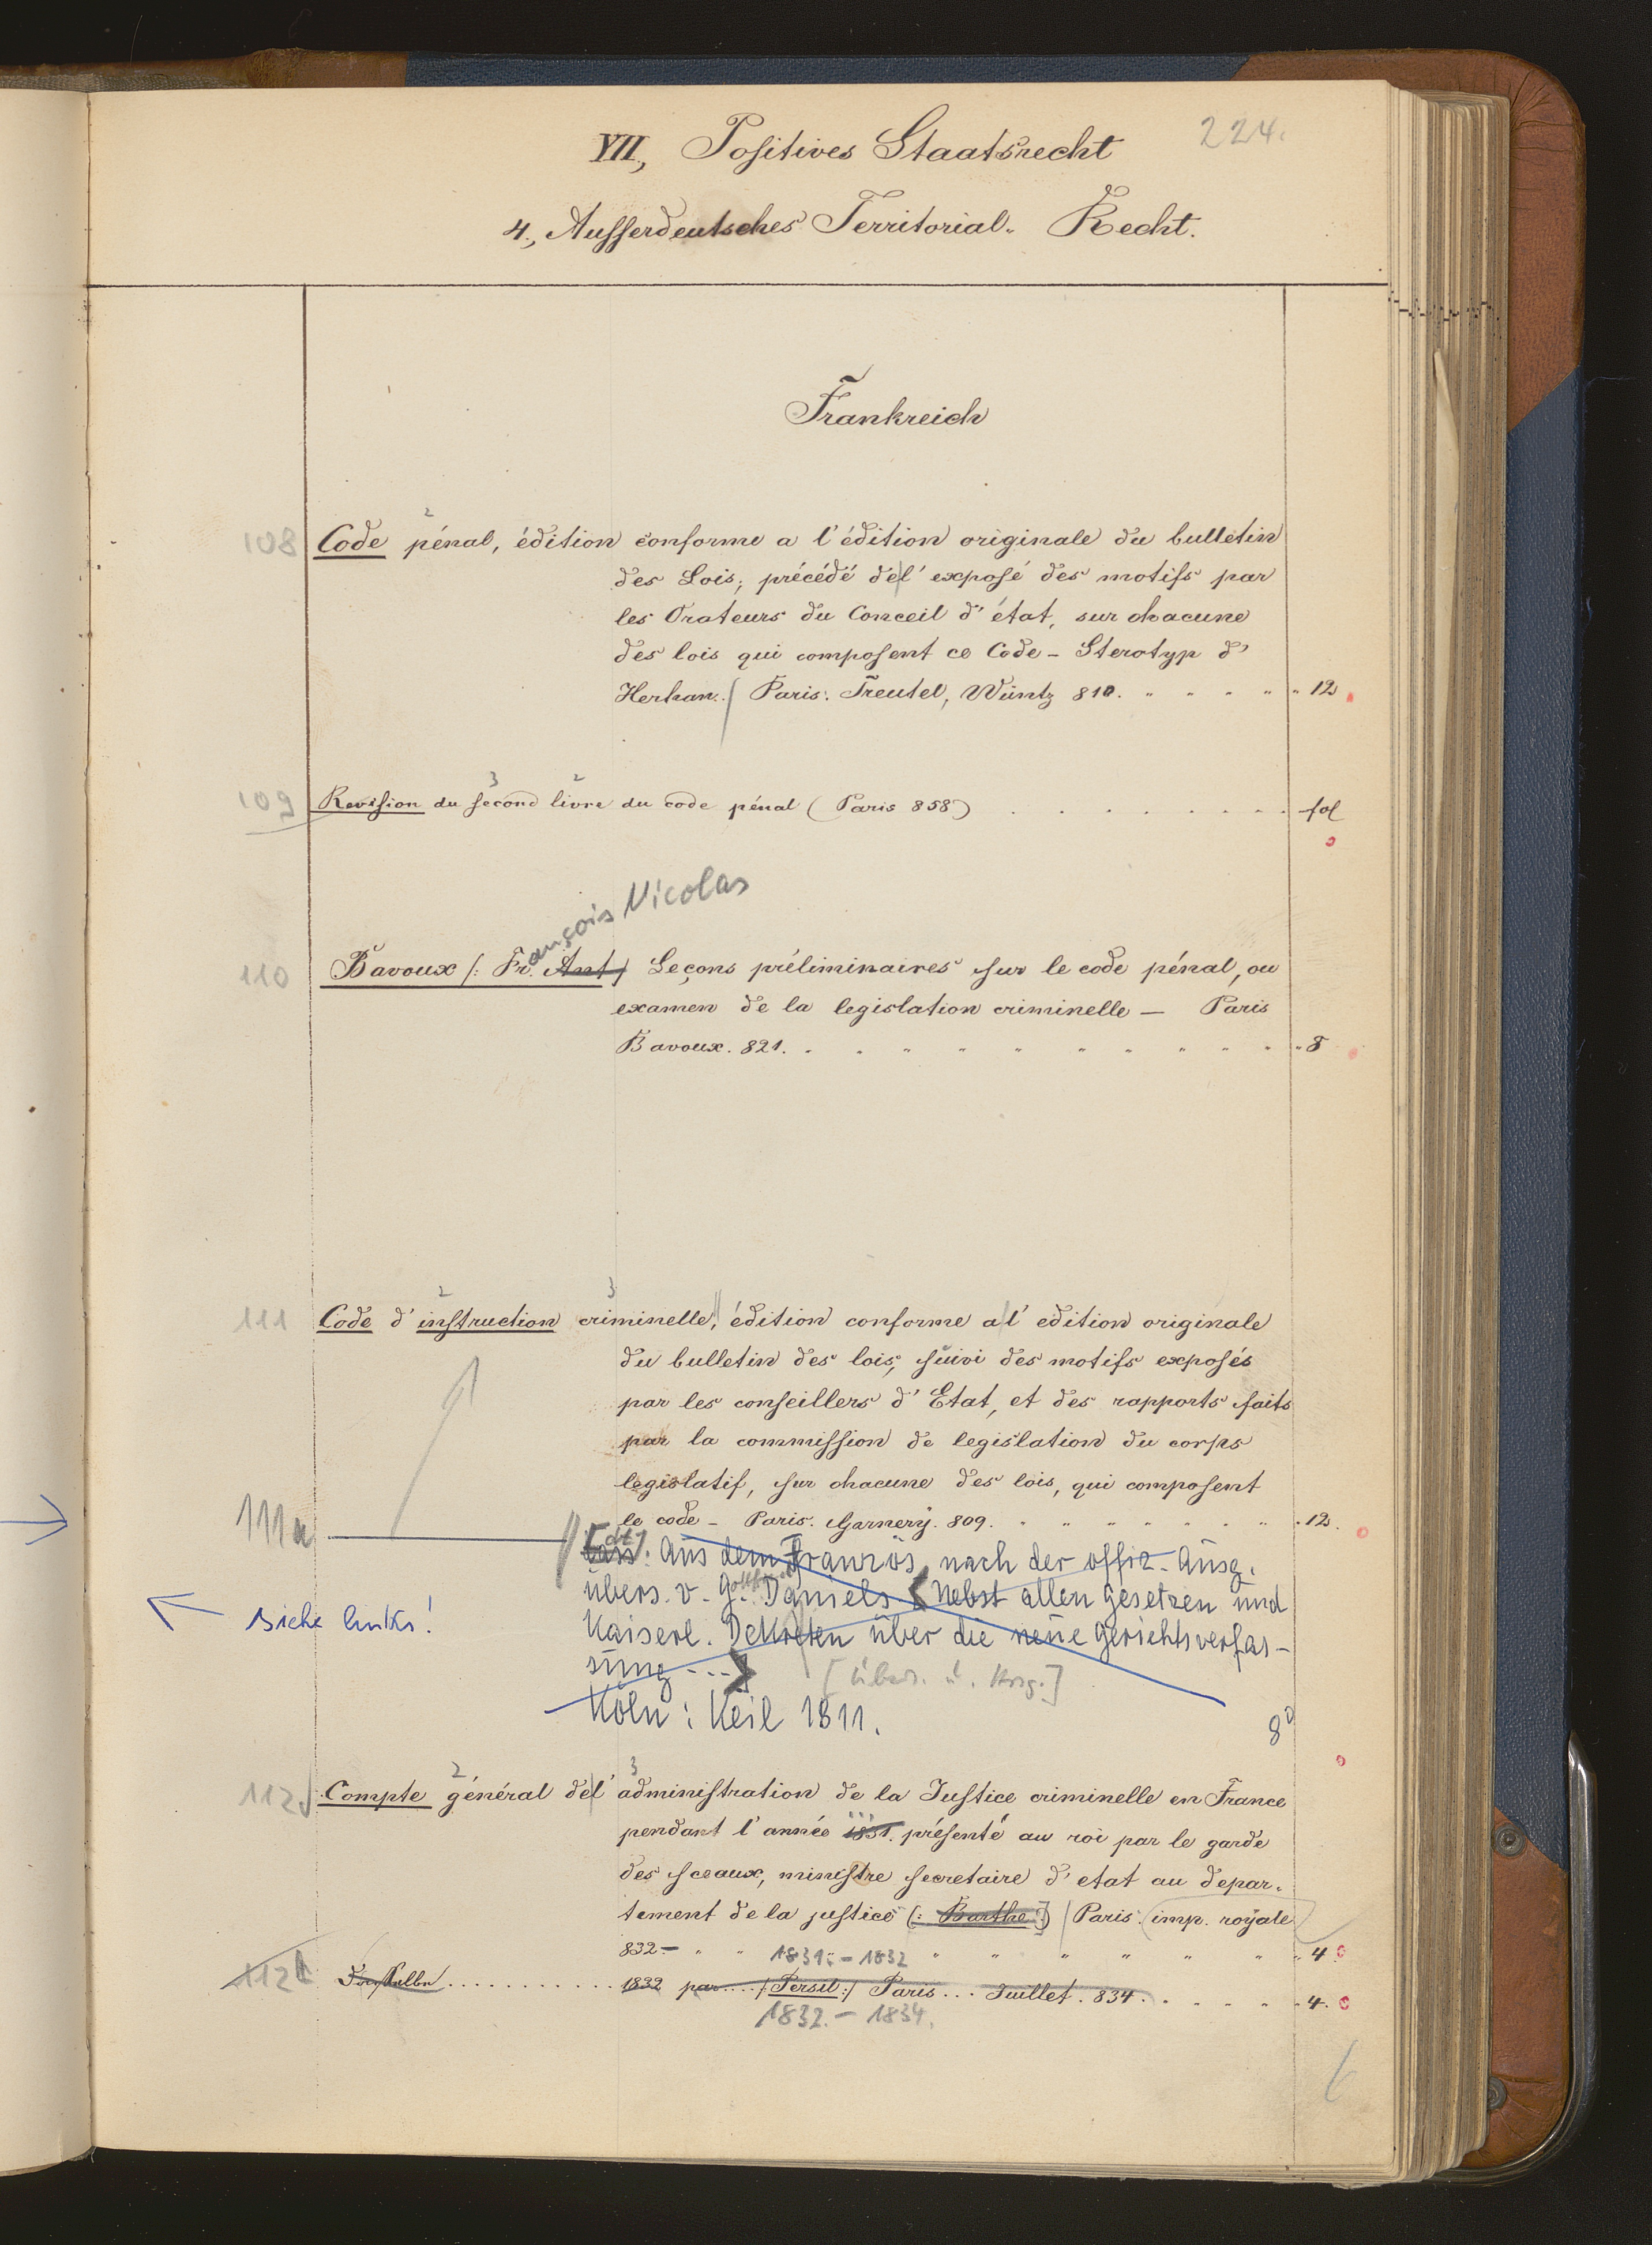 224.
VII, Positives Staatsrecht
4., Ausserdeutsches Territorial- Recht.
Frankreich
2
108 Code pénal, édition conforme a l'édition originale du bulletin
des Lois, précédé de l' exposé des motifs par
les Orateurs du Conceil d' état, sur chacune
des lois qui composent ce Code - Sterotyp d'
Herhan. / Paris. Treutel, Würtz 810. " " " " " 12
3 2
109 Revision du second livre du code pénal (Paris 858) . . . . . . . . fol
ançois Nicolas
110 Bavoux /: Fr. Ant / Leçons préliminaires sur le code pénal, ou
examen de la legislation criminelle — Paris
Bavoux. 821. . . " " " " " " " " " 8
2 3
111 Code d' instruction criminelle, édition conforme a l' edition originale
du bulletin des lois, suivi des motifs exposés
par les conseillers d' Etat, et des rapports faits
par la commission de legislation du corps
legislatif, sur chacune des lois, qui composent
le code - Paris. Garnery. 809. " " " " " " . 12.
111a [dt.] Aus dem Französ. nach der offiz. Ausg.
übers. v. G. Daniels. Nebst allen Gesetzen und
siehe links! Kaiserl. Dekreten über die neue Gerichtsverfas-
sung ...
[Übers. u. Hrsg.]
Köln: Keil 1811. 8°
2 3
112 Compte général de l' administration de la Justice criminelle en France
pendant l' année 1831. présenté au roi par le garde
des sceaux, ministre secretaire d' etat au depar-
tement de la justice (: Barthe :) / Paris. (imp. royale
832 - " " 1831. - 1832 " " " " " " " 4.
112b Dasselbe . . . . . . . . . . . 1832 par .... /: Persil :/ Paris ... Juillet. 834. . . " " " 4.
1832. - 1834.